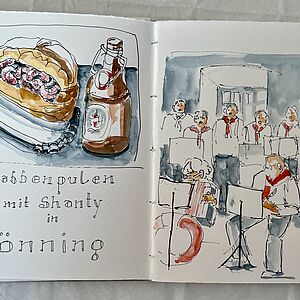 abbenpulen
mit Shanty
in
önning